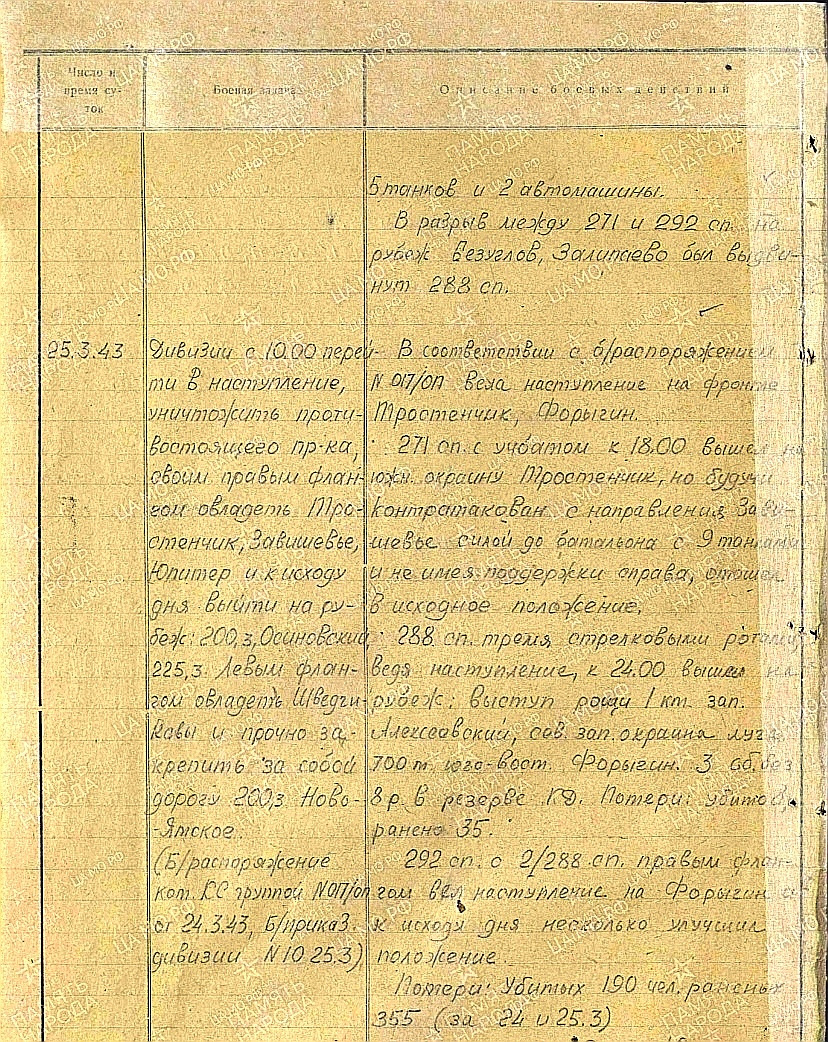 Число и
время су-
ток
Боевая задача
Описание боевых действий
5 танков и 2 автомашины.
В разрыв между 271 и 292 сп. на
рубеж Безуглов, Залипаево был выдви-
нут 288 сп.
25.3.43
Дивизии с 10.00 перей-
ти в наступление,
уничтожить проти-
востоящего пр-ка,
своим правым флан-
гом овладеть Тро-
стенчик, Завишевье,
Юпитер и к исходу
дня выйти на ру-
беж: 200,3, Осиновский
225,3. Левым флан-
гом овладеть Шведчи-
ковы и прочно за-
крепить за собой
дорогу 200,3 Ново-
-Ямское.
(Б/распоряжение
ком. КС группой N017/оп
от 24.3.43, Б/приказ.
дивизии N10 25.3)
В соответствии с б/распоряжением
N 017/оп вела наступление на фронте
Тростенчик, Форыгин.
271 сп. с учбатом к 18.00 вышел на
южн. окраину Тростенчик, но будучи
контратакован с направления Зави-
шевье силой до батальона с 9 танками
и не имея поддержки справа, отошел
в исходное положение.
288 сп. тремя стрелковыми ротами
ведя наступление, к 24.00 вышел на
рубеж: выступ рощи 1 км. зап.
Алексеевский, сев. зап. окраина луга
700 м. юго-вост. Форыгин. 3 сб. без
8 р. в резерве КД. Потери: убито 8,
ранено 35.
292 сп. с 2/288 сп. правым флан-
гом вел наступление на Форыгин и
к исходу дня несколько улучшил
положение.
Потери: Убитых 190 чел. раненых
355 (за 24 и 25.3)
ПАМЯТЬ
НАРОДА
ЦАМО.РФ